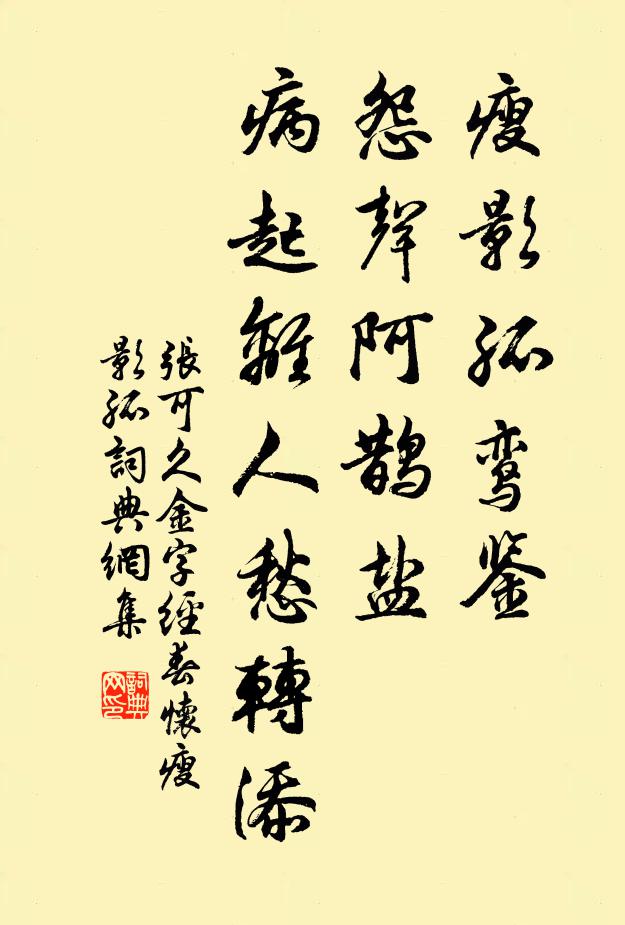 瘦影孤鸾鉴
怨聲阿鵲盐
病起離人愁轉添
張可久金字經春懷瘦
影孤詞典網集
詞典
网印